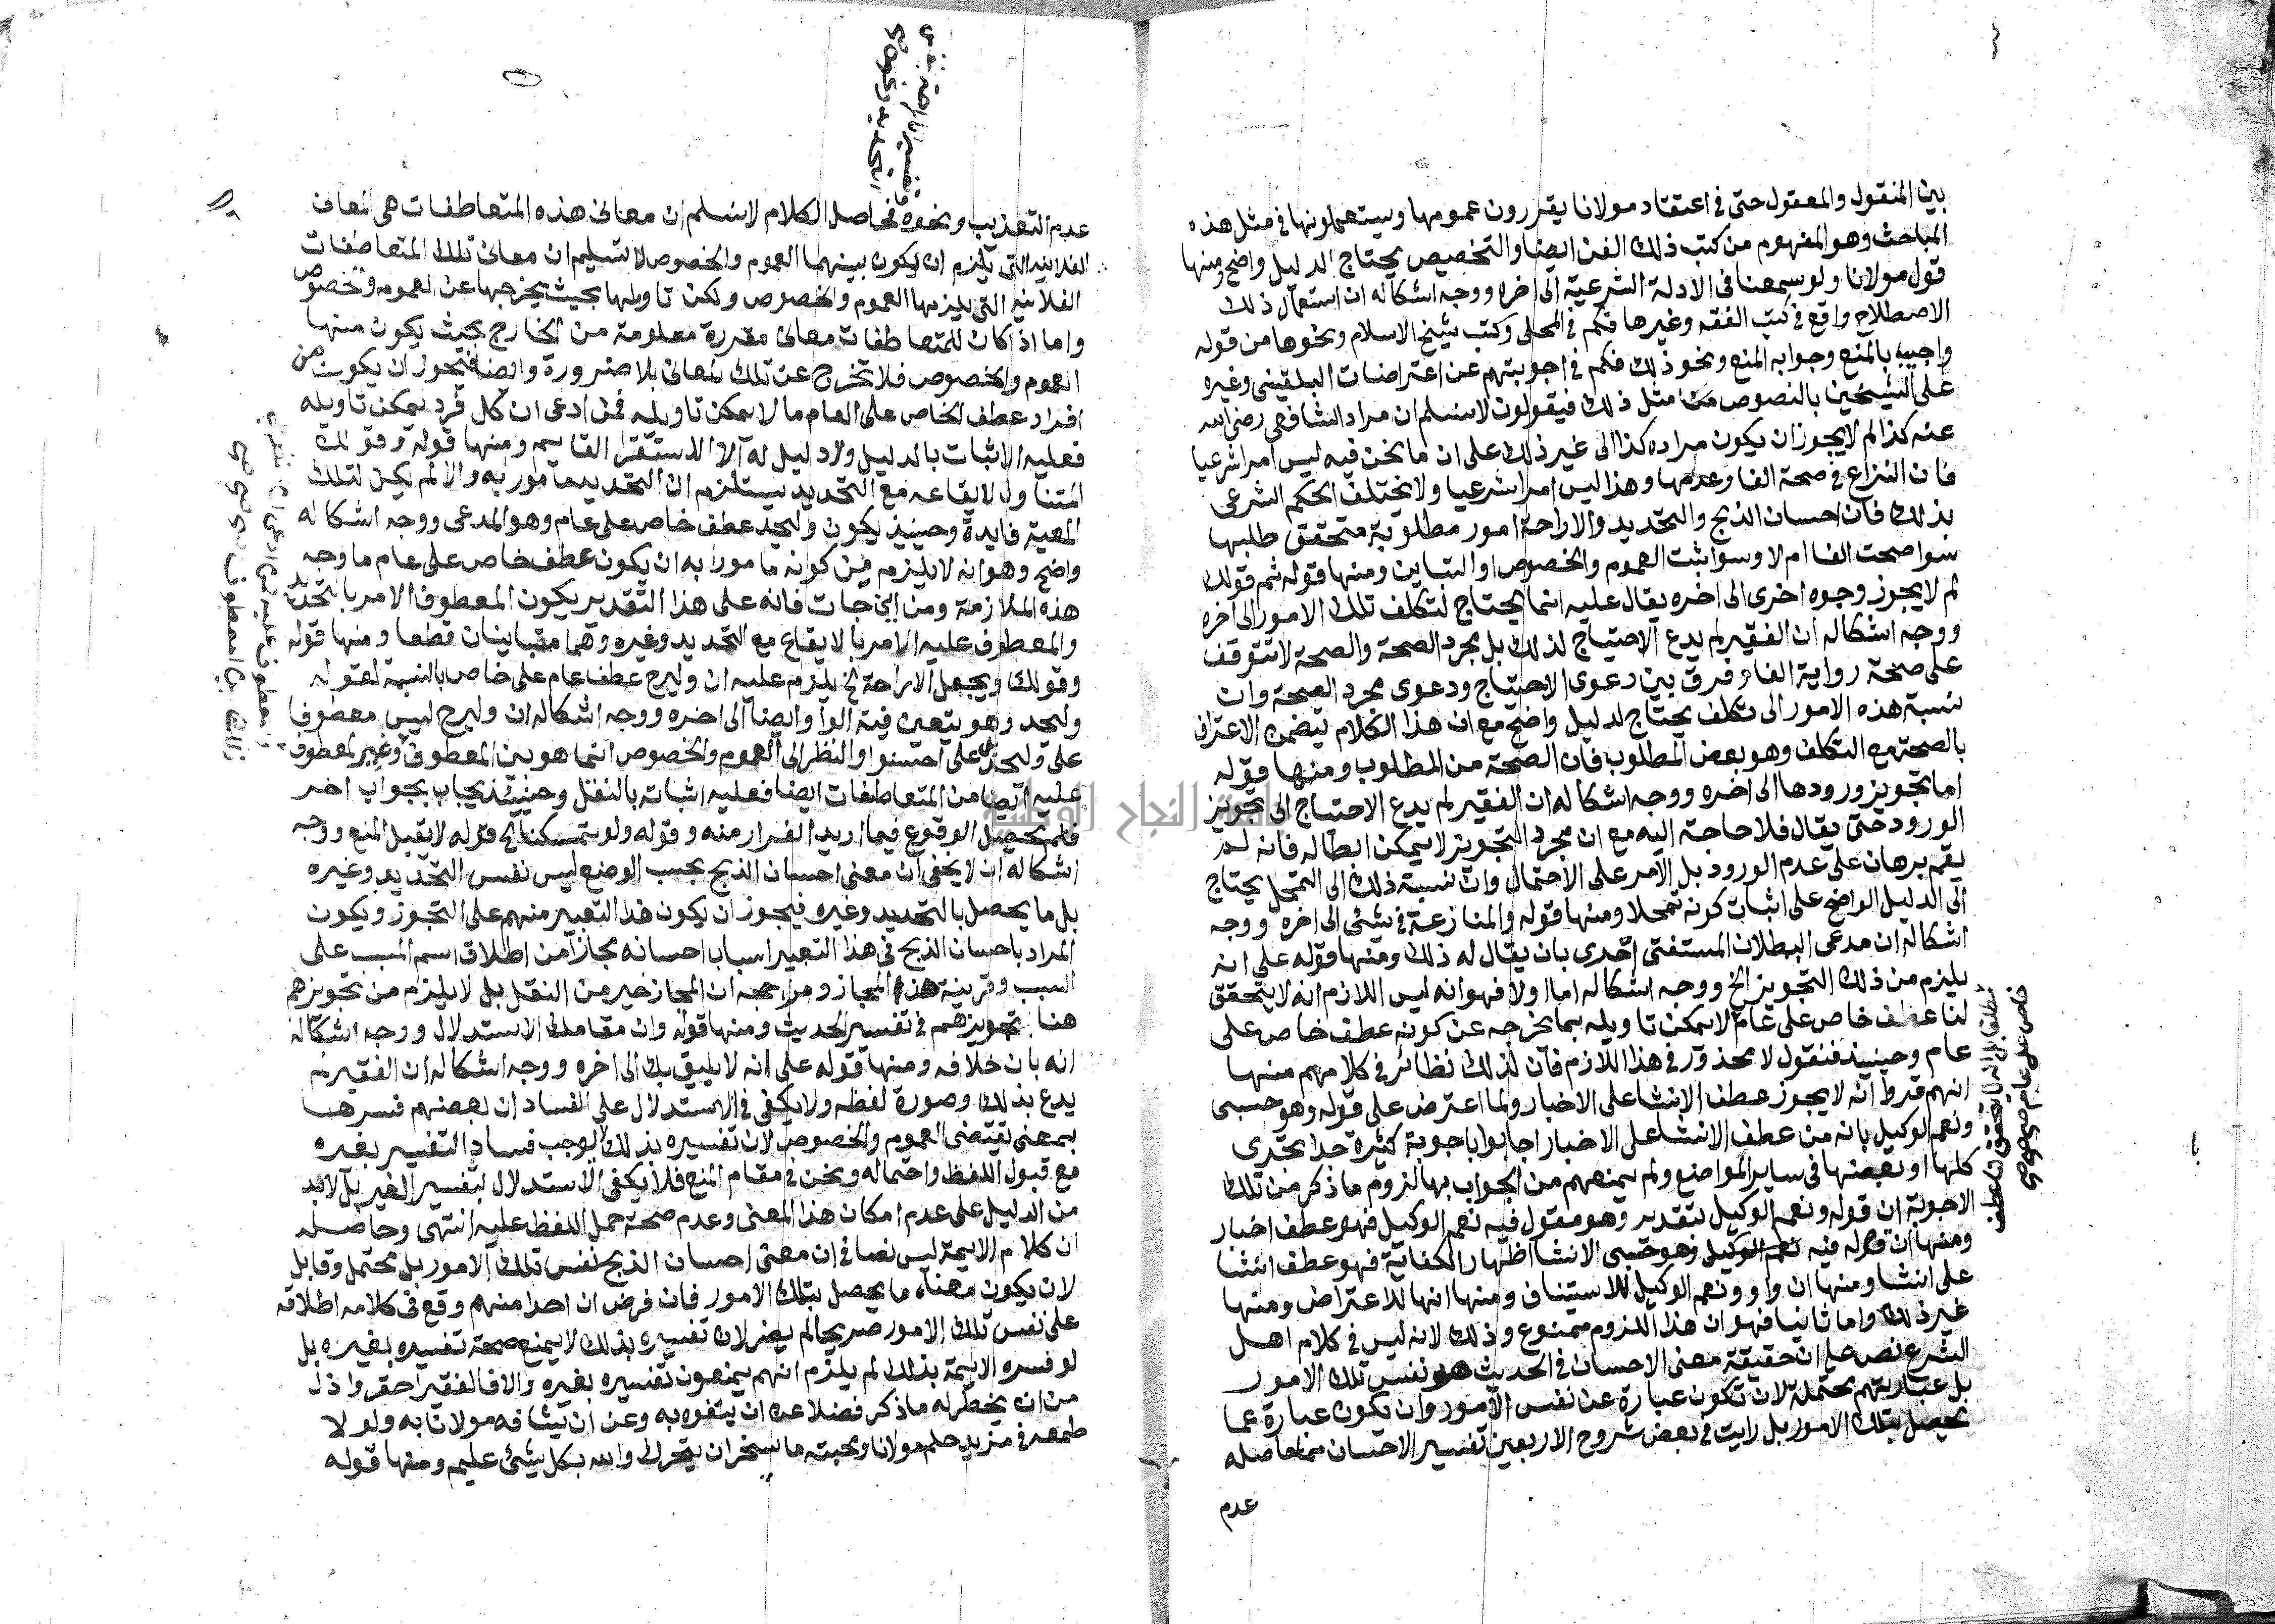 بين المنقول والمعقول حتى في اعتقاد مولانا يقررون عمومها ويستعملونها في مثل هذه
المباحث وهو المفهوم من كتب ذلك الفن ايضا والتخصيص يحتاج الدليل واضح ومنها
قول مولانا ولو سمعنا في الادلة الشرعية الى اخره ووجه اشكاله ان استعمال ذلك
الاصطلاح واقع في كتب الفقه وغيرها فكم في المحلى وكتب شيخ الاسلام ونحوها من قوله
واجيب بالمنع وجوابه المنع ونحو ذلك فكم في اجوبتهم عن اعتراضات البلقيني وغيره
على الشيخين بالنصوص من مثل ذلك فيقولون لا نسلم ان مراد الشافعي رضي الله
عنه كذا لم لا يجوز ان يكون مراده كذا الى غير ذلك على ان ما نحن فيه ليس امرا شرعيا
فان النزاع في صحة الفا وعدمها وهذا ليس امرا شرعيا ولا يختلف الحكم الشرعي
بذلك فان احسان الذبح والتحديد والاراحة امور مطلوبة متحقق طلبها
سوا صحت الفا ام لا وسوا ثبت العموم والخصوص او التباين ومنها قوله ثم قولك
لم لا يجوز وجوه اخرى الى اخره يقال عليه انما يحتاج لتكلف تلك الامور الى اخره
ووجه اشكاله ان الفقير لم يدع الاحتياج لذلك بل مجرد الصحة والصحة لا تتوقف
على صحة رواية الفا وفرق بين دعوى الاحتياج ودعوى مجرد الصحة وان
نسبة هذه الامور الى تكلف يحتاج لدليل واضح مع ان هذا الكلام يتضمن الاعتراف
بالصحة مع التكلف وهو بعض المطلوب فان الصحة من المطلوب ومنها قوله
اما تجويز ورودها الى اخره ووجه اشكاله ان الفقير لم يدع الاحتياج الى تجويز
الورود حتى يقال فلا حاجة اليه مع ان مجرد التجويز لا يمكن ابطاله فانه لم
يقم برهان على عدم الورود بل الامر على الاحتمال وان نسبة ذلك الى التمحل يحتاج
الى الدليل الواضح على اثبات كونه تمحلا ومنها قوله والمنازعة في شئ الى اخره ووجه
اشكاله ان مدعى البطلان المستفتى احرى بان يقال له ذلك ومنها قوله على انه
يلزم من ذلك التجويز الخ ووجه اشكاله اما اولا فهو انه ليس اللازم انه لا يتحقق
لنا عطف خاص على عام لا يمكن تاويله بما يخرجه عن كونه عطف خاص على
عام وحينيذ فنقول لا محذور في هذا اللازم فان لذلك نظائر في كلامهم منها
انهم قرروا انه لا يجوز عطف الانشا على الاخبار ولما اعترض على قوله وهو حسبي
ونعم الوكيل بانه من عطف الانشا على الاخبار اجابوا باجوبة كثيرة جدا تجري
كلها او بعضها في ساير المواضع ولم يمنعهم من الجواب بها لزوم ما ذكر من تلك
الاجوبة ان قوله ونعم الوكيل بتقدير وهو مقول فيه نعم الوكيل فهو عطف اخبار
ومنها ان قوله فيه نعم الوكيل وهو حسبي الانشا اظهار الكفاية فهو عطف انشا
على انشا ومنها ان واو ونعم الوكيل للاستيناف ومنها انها للاعتراض ومنها
غير ذلك واما ثانيا فهو ان هذا اللزوم ممنوع وذلك لانه ليس في كلام اهل
الشرع نص على ان حقيقة معنى الاحسان في الحديث هو نفس تلك الامور
بل عباريتهم محتملة لان تكون عبارة عن نفس الامور وان تكون عبارة عما
يحصل بتلك الامور بل رايت في بعض شروح الاربعين تفسير الاحسان بما حاصله
عدم
عدم التعذيب ونحوه فحاصل الكلام لا نسلم ان معاني هذه المتعاطفات هي المعاني
الفلانية التي يلزم ان يكون بينهما العموم والخصوص لا تسليم ان معاني تلك المتعاطفات
الفلانية التي يلزمها العموم والخصوص ولكن تاويلها بحيث يخرجها عن العموم والخصوص
واما اذا كان للمتعاطفات معاني مقررة معلومة من الخارج بحيث يكون منها
العموم والخصوص فلا تخرج عن تلك المعاني بلا ضرورة وايضا فتجوز ان يكون من
افراد عطف الخاص على العام ما لا يمكن تاويله فمن ادعى ان كل فرد يمكن تاويله
فعليه الاثبات بالدليل ولا دليل له الا الاستقرا ومنها قوله وقولك
المتناول لايقاعه مع التحديد يستلزم ان التحديد مامور به والا لم يكن لتلك
المعية فايدة وحينيذ يكون وليحد عطف خاص على عام وهو المدعى ووجه اشكاله
واضح وهو انه لا يلزم من كونه مامورا به ان يكون عطف خاص على عام ما وجه
هذه الملازمة ومن اين جات فانه على هذا التقدير يكون المعطوف الامر بالتحديد
والمعطوف عليه الامر بالايقاع مع التحديد وغيره وهما متباينان قطعا ومنها قوله
وقولك ويجعل الاراحة الخ يلزم عليه ان وليرح عطف عام على خاص بالنسبة لقوله
وليحد وهو يتعين فيه الواو ايضا الى اخره ووجه اشكاله ان وليرح ليس معطوفا
على وليحد بل على احسنوا والنظر الى العموم والخصوص انما هو بين المعطوف وغير المعطوف
عليه ايضا من المتعاطفات ايضا فعليه اثباته بالنقل وحينيذ يجاب بجواب اخر
فلم يحصل الوقوع فيما اريد الفرار منه وقوله ولو تمسكنا الخ قوله لا يقبل المنع ووجه
اشكاله ان لا يخفى ان معنى احسان الذبح بحسب الوضع ليس نفس التحديد وغيره
بل ما يحصل بالتحديد وغيره فيجوز ان يكون هذا التعبير منهم على التجوز ويكون
المراد باحسان الذبح في هذا التعبير اسباب احسانه مجازا من اطلاق اسم المسبب على
السبب وقرينة هذا المجاز ومرجحه ان المجاز خير من النقل بل لا يلزم من تجويزهم
هنا تجويزهم في تفسير الحديث ومنها قوله وان مقامك الاستدلال ووجه اشكاله
انه بان خلافه ومنها قوله على انه لا يليق بك الى اخره ووجه اشكاله ان الفقير لم
يدع بذلك وصورة لفظه ولا يكفي في الاستدلال على الفساد ان بعضهم فسرها
بمعنى يقتضى العموم والخصوص لان تفسيره بذلك لا يوجب فساد التفسير بغيره
مع قبول اللفظ واحتماله ونحن في مقام المنع فلا يكفي الاستدلال بتفسير الغير بل لابد
من الدليل على عدم امكان هذا المعنى وعدم صحة حمل اللفظ عليه انتهى وحاصله
ان كلام الايمة ليس نصا في ان معنى احسان الذبح نفس تلك الامور بل محتمل وقابل
لان يكون معناه ما يحصل بتلك الامور فان فرض ان احدا منهم وقع في كلامه اطلاقه
على نفس تلك الامور صريحا لم يضر لان تفسيره بذلك لا يمنع صحة تفسيره بغيره بل
لو فسره الايمة بذلك لم يلزم انهم يمنعون تفسيره بغيره والا فالفقير احقر واذل
من ان يخطر له ما ذكر فضلا عن ان يتفوه به وعن ان يشافه مولانا به ولولا
طمعه في مزيد حلم مولانا ومحبته ما سخر ان يتحرك والله بكل شئ عليم ومنها قوله